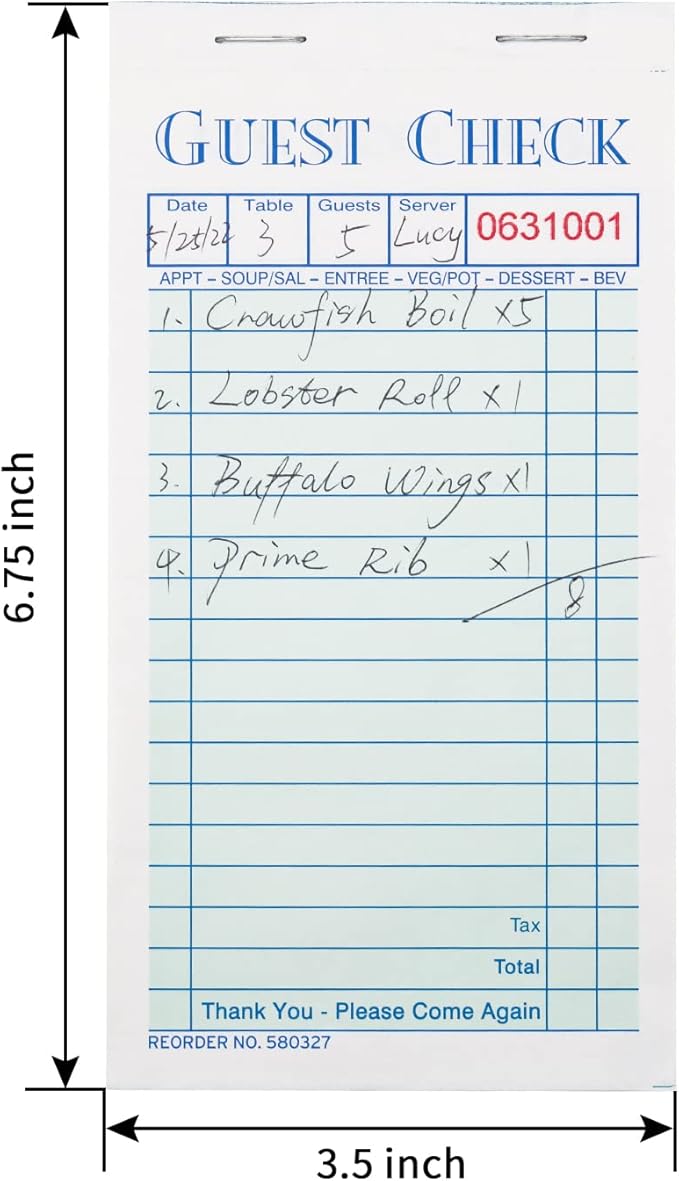 GUEST CHECK
Date Table Guests Server
5/25/22 3 5 Lucy 0631001
APPT – SOUP/SAL – ENTREE – VEG/POT – DESSERT – BEV
1. Crawfish Boil x5
2. Lobster Roll x 1
3. Buffalo Wings x1
4. Prime Rib x1
8
Tax
Total
Thank You - Please Come Again
REORDER NO. 580327
6.75 inch
3.5 inch